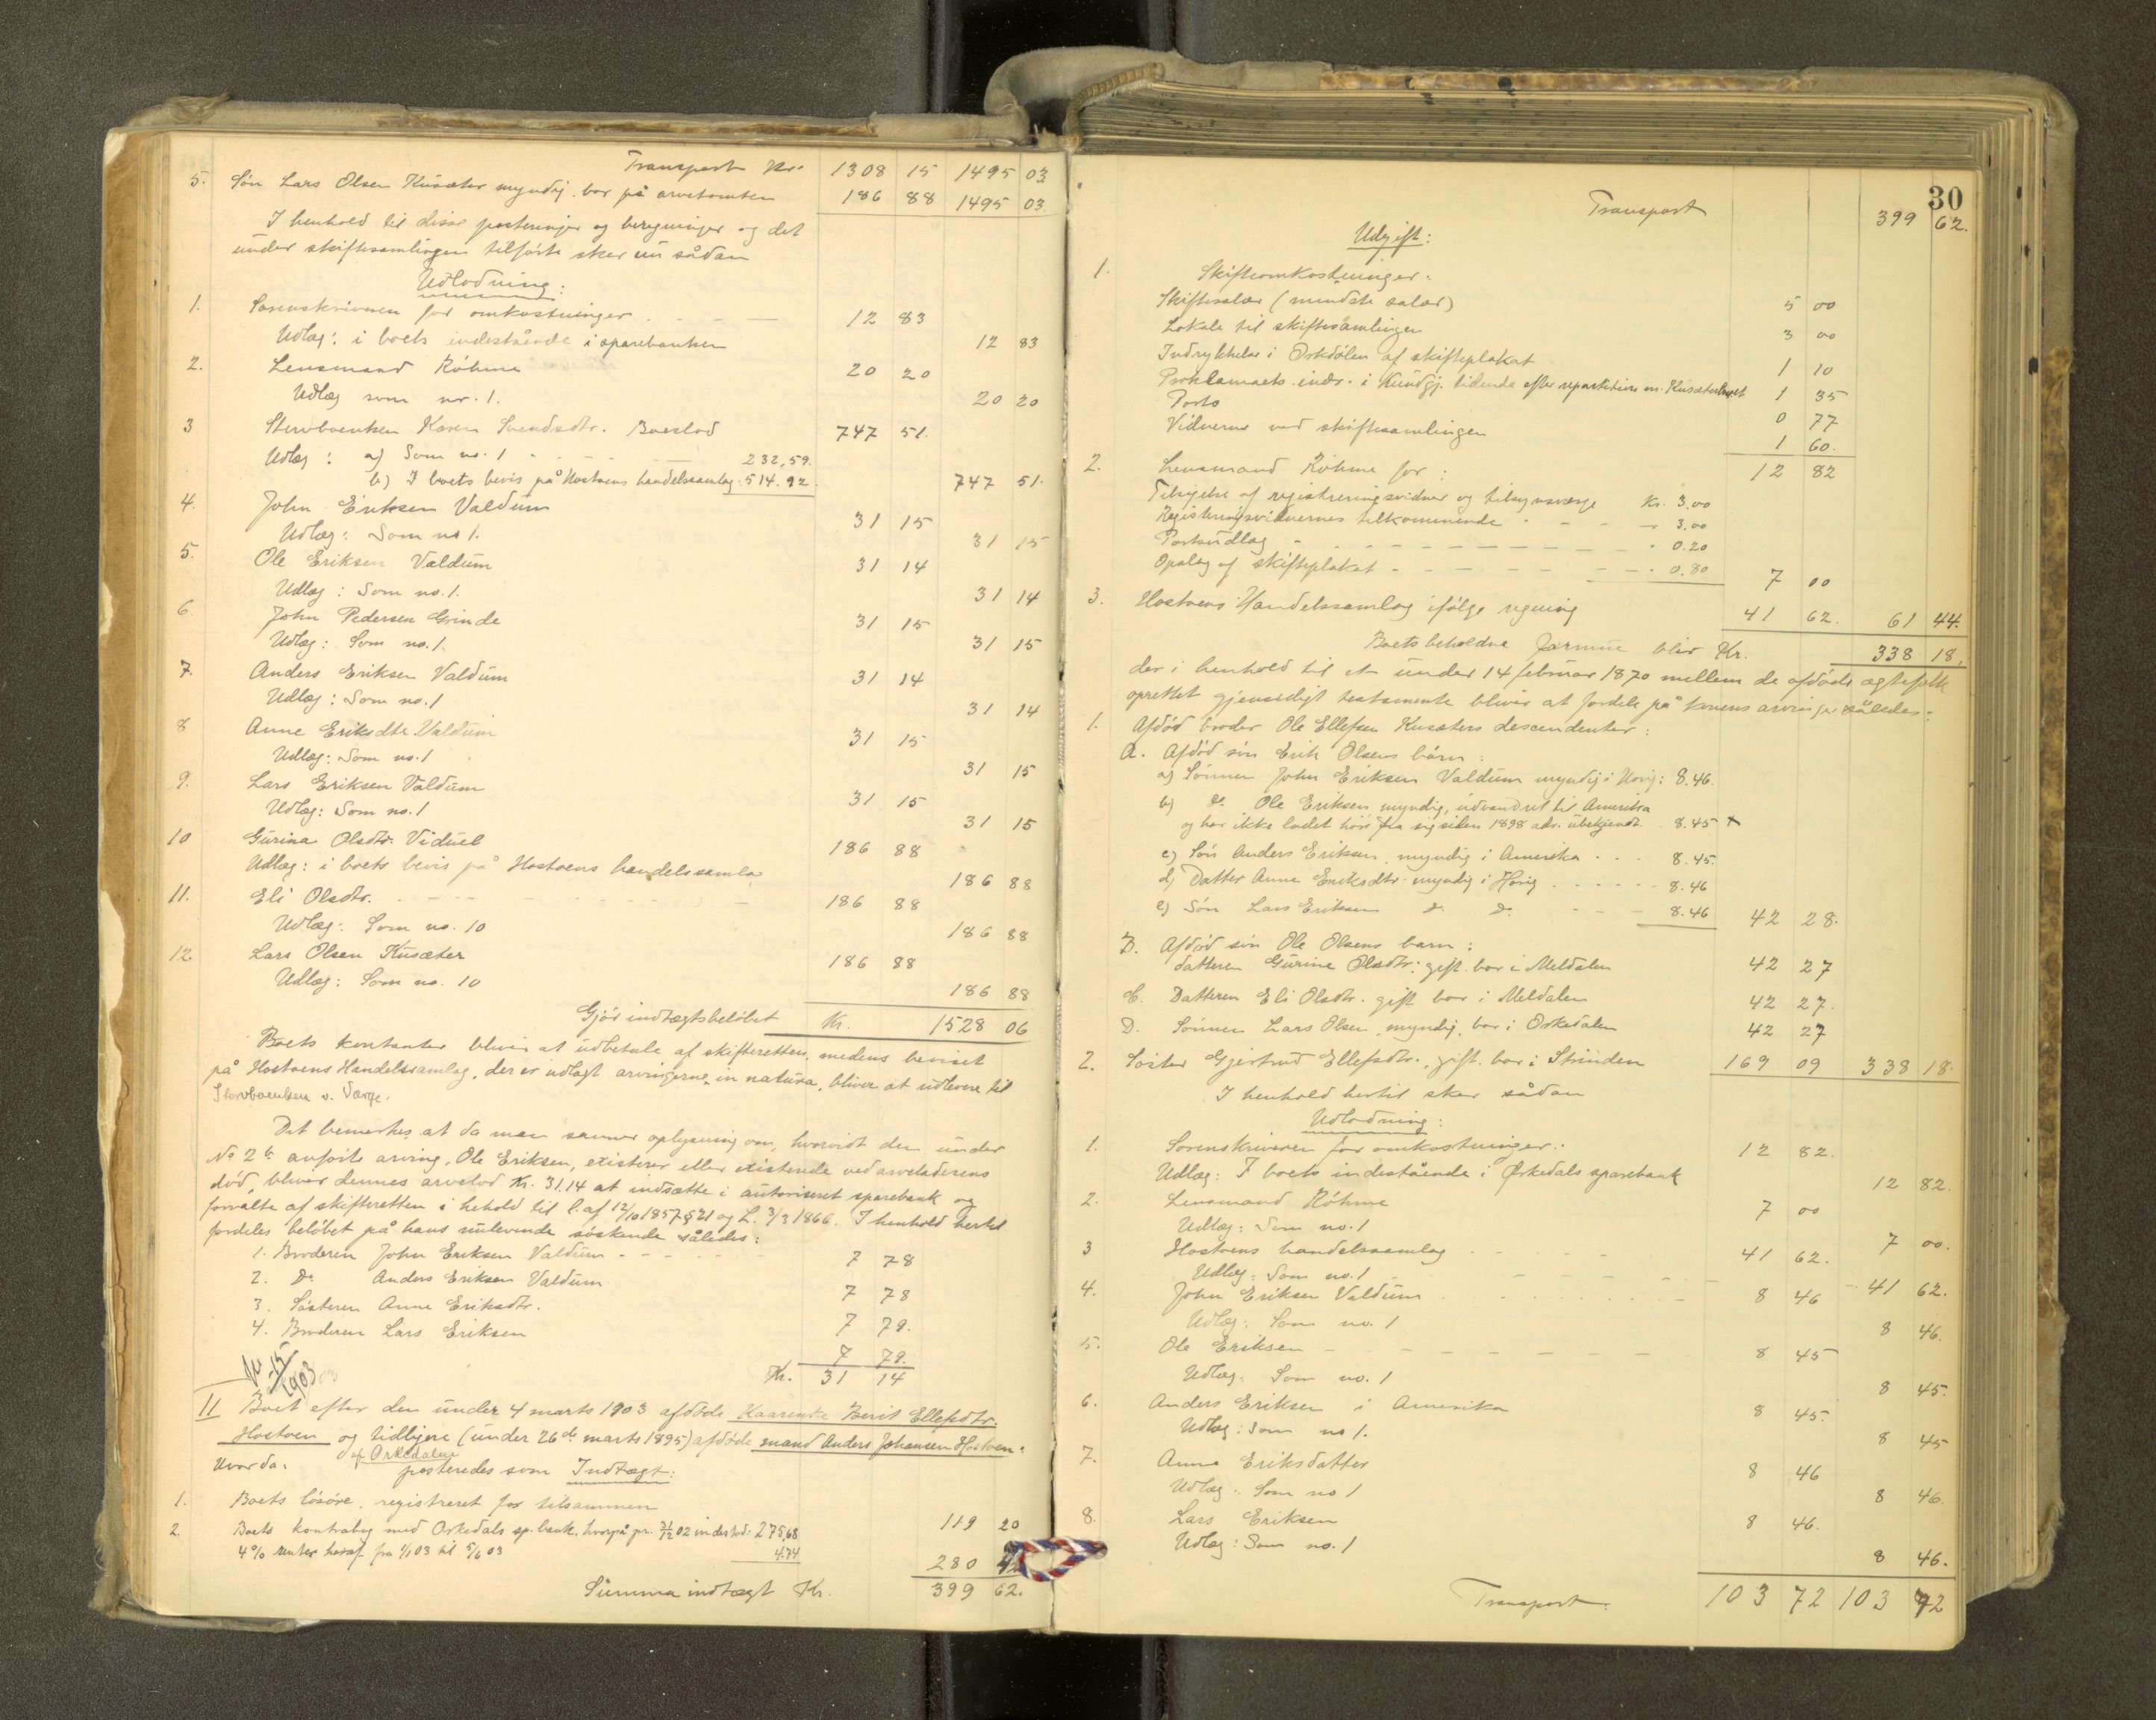 Transport Kr. 1308 15 1495 03
5. Søn Lars Olsen Kusæter myndig, bor på arvetomten 186 88 1495 03
I henhold til disse posteringer og beregninger og det
under skiftesamlingen tilførte sker nu sådan
Udlodning:
1. Sorenskriveren for omkostninger 12 83
Udlæg: i boets indestående i sparebanken 12 83
2. Lensmand Röhme 20 20
Udlæg som nr. 1. 20 20
3 Stervboenken Karen Svendsdtr. Boeslod 747 51.
Udlæg: a) Som no. 1 232,59.
b) I boets bevis på Hostoens handelssamlag. 514.92. 747 51.
4. John Eriksen Valdum 31 15
Udlæg: Som no 1. 31 15
5. Ole Eriksen Valdum 31 14
Udlæg: Som no. 1. 31 14
6. John Pedersen Grinde 31 15
Udlæg: Som no. 1. 31 15
7. Anders Eriksen Valdum 31 14
Udlæg: Som no. 1 31 14
8 Anne Eriksdtr. Valdum 31 15
Udlæg: Som no. 1 31 15
9. Lars Eriksen Valdum 31 15
Udlæg: Som no. 1 31 15
10 Gurina Olsdtr. Viduel 186 88
Udlæg: i boets bevis på Hostoens handelssamla 186 88
11. Eli Olsdtr. 186 88
Udlæg: Som no. 10 186 88
12. Lars Olsen Kusæter 186 88
Udlæg: Som no. 10 186 88
Gjør indtægtsbeløbet Kr. 1528 06
Boets kontanter bliver at udbetale af skifteretten, medens beviset
på Hostoens Handelssamlag, der er udlagt arvingerne in natura, bliver at udlevere til
Stervboenken v. Værge.
Det bemerkes, at da man savner oplysning om, hvorvidt den under
No 2 b anførte arving, Ole Eriksen, existerer eller existerede ved arveladerens
død, bliver dennes arvelod Kr. 31.14 at indsætte i autoriseret sparebank og
forvalte af skifteretten i hehold til l. af 12/10 1857 § 21 og L. 3/3 1866. I henhold hertil
fordeles beløbet på hans nulevende søskende således:
1. Broderen John Eriksen Valdum 7 78
2. Do Anders Eriksen Valdum 7 78
3. Søsteren Anne Eriksdtr. 7 79.
4. Broderen Lars Eriksen 7 79.
Kr. 31 14
1903
11 Boet efter den under 4 marts 1903 afdøde Kaarenke Berit Ellefsdtr.
Hostoen og tidligere (under 26de marts 1895) afdøde mand Anders Johansen Hostoen.
af Orkedalen
Hvorda. posteredes som Indtægt:
1. Boets løsøre, registreret for tilsammen 119 20
2. Boets kontrabog med Orkedals sp.bank, hvorpå pr. 31/12 02 indestod: 275,68
4% renter heraf fra 1/1 03 til 5/6 03 4.74 280 42
Summa indtægt Kr. 399 62.
30
Transport 399 62.
Udgift:
1. Skifteomkostninger.
Skiftesalær (mindste salær) 5 00
Lokale til skiftesamlingen 3 00
Indrykkelse i Orkdølen af skifteplakat 1 10
Proklamaets indr. i Kundgj. tidende efter repartition m. Kusæterboet 1 35
Porto 0 77
Vidnerne ved skiftesamlingen 1 60.
12 82
2. Lensmand Röhme for:
Tilsigelse af registreringsvidner og tilsynsværge Kr. 3.00
Registeringsvidnernes tilkommende 3.00
Portoudlæg 0.20
Opslag af skifteplakat 0.80 7 00
3. Hostoens Handelssamlag ifølge regning 41 62. 61 44.
Boets beholdne formue blir Kr. 338 18.
der i henhold til et under 14 februar 1870 mellem de afdøde ægtefolk
oprettet gjensidigt testamente bliver at fordele på konens arvinger således:
1. Afdød broder Ole Ellefsen Kusæters descendenter:
A. Afdød søn Erik Olsens børn:
a) Sønnen John Eriksen Valdum myndig i Horig: 8.46.
b) do Ole Eriksen myndig, udvandret til Amerika
og har ikke ladet høre fra sig siden 1898 adr. ubekjendt 8.45 +
c) Søn Anders Eriksen, myndig i Amerika 8.45.
d) Datter Anne Eriksdtr. myndig i Horig 8.46
e) Søn Lars Eriksen do do 8.46 42 28.
B. Afdød søn Ole Olsens barn:
datteren Gurine Olsdtr. gift, bor i Meldalen 42 27
C. Datteren Eli Olsdtr. gift bor i Meldalen 42 27.
D. Sønnen Lars Olsen, myndig, bor i Orkedalen 42 27
2. Søster Gjertrud Ellefsdtr., gift. bor i Strinden 169 09 338 18.
I henhold hertil sker sådan
Udlodning:
1. Sorenskriveren for omkostninger. 12 82.
Udlæg: I boets indestående i Orkedals sparebank 12 82.
2. Lensmand Röhme 7 00
Udlæg: Som no. 1 7 00.
3 Hostoens handelssamlag 41 62.
Udlæg: Som no. 1 41 62.
4. John Eriksen Valdum 8 46
Udlæg: Som no. 1 8 46.
5. Ole Eriksen 8 45
Udlæg: Som no. 1 8 45.
6. Anders Eriksen i Amerika 8 45.
Udlæg: Som no 1. 8 45
7. Anne Eriksdatter 8 46
Udlæg: Som no 1 8 46.
8. Lars Eriksen 8 46.
Udlæg: Som no. 1 8 46.
Transport: 103 72 103 72